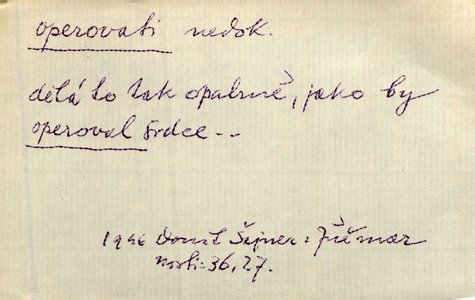 operovati nedok.
dělá to tak opatrně, jako by
operoval srdce --
1946 Donat Šajner:
nosti: 36, 27.